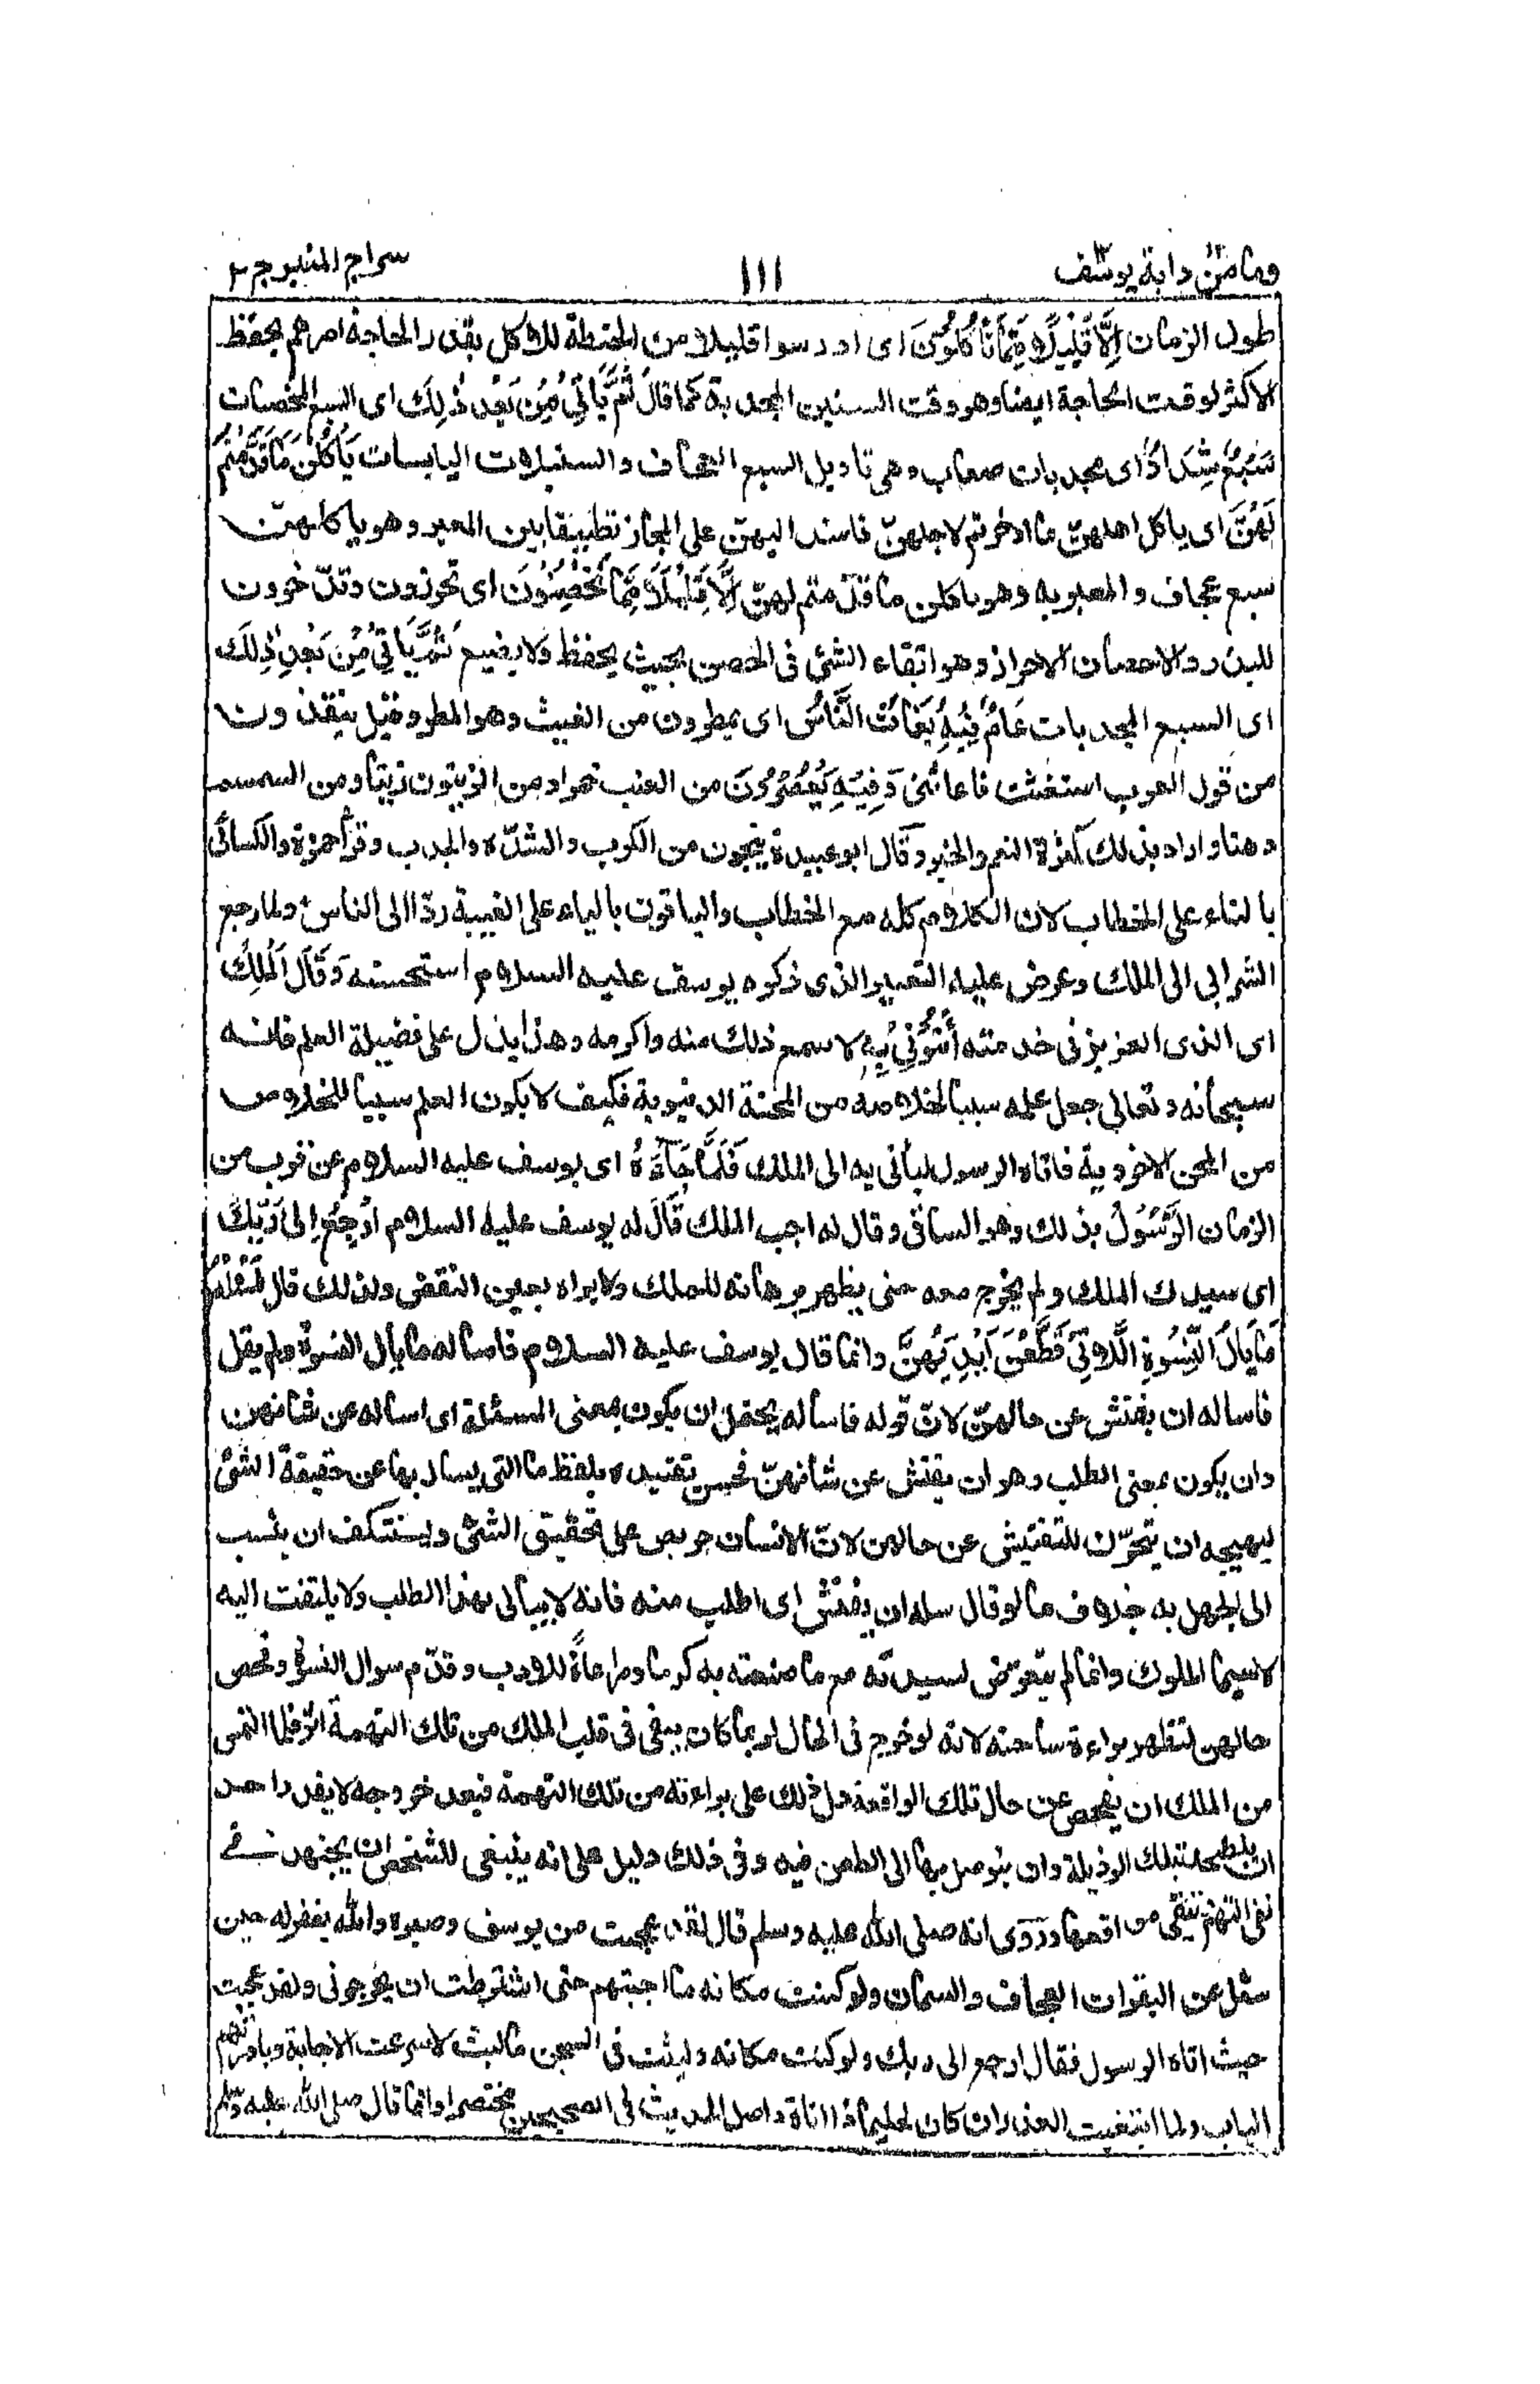 وما من دابة ١٢ يوسف ١٢
١١١
سراج المنير ج ٢
طول الزمان اِلَّا قَلِيْلًا مِّمَّا تَأْكُلُوْنَ اى ادرسوا قليلا من الحنطة للاكل بقدر الحاجة امرهم بحفظ
الاكثر لوقت الحاجة ايضا وهو وقت السنين المجدبة كما قال ثُمَّ يَأْتِيْ مِنْ بَعْدِ ذٰلِكَ اى السبع المخصبات
سَبْعٌ شِدَادٌ اى مجدبات صعاب وهى تاويل السبع العجاف والسنبلات اليابسات يَأْكُلْنَ مَا قَدَّمْتُمْ
لَهُنَّ اى ياكل اهلهن ما ادخرتم لاجلهن فاسند اليهن على المجاز تطبيقا بين المعبر وهو ياكلهن
سبع عجاف والمعبر به وهو ياكلن ما قدمتم لهن اِلَّا قَلِيْلًا مِّمَّا تُحْصِنُوْنَ اى تحرزون وتدخرون
للبذر والاحصان الاحراز وهو ابقاء الشئ فى الحصن بحيث يحفظ ولا يضيع ثُمَّ يَأْتِيْ مِنْ بَعْدِ ذٰلِكَ
اى السبع المجدبات عَامٌ فِيْهِ يُغَاثُ النَّاسُ اى يمطرون من الغيث وهو المطر وقيل ينقذون
من قول العرب استغثت فاغاثنى وَفِيْهِ يَعْصِرُوْنَ من العنب خمرا ومن الزيتون زيتا ومن السمسم
دهنا واراد بذلك كثرة النعم والخير وقال ابو عبيدة ينجون من الكرب والشدة والجدب وقرأ حمزة والكسائى
بالتاء على الخطاب لان الكلام كله مع الخطاب والباقون بالياء على الغيبة ردّا الى الناس ولما رجع
الشرابى الى الملك وعرض عليه التعبير الذى ذكره يوسف عليه السلام استحسنه وَقَالَ الْمَلِكُ
اى الذى العزيز فى خدمته ائْتُوْنِيْ بِهٖ لاسمع ذلك منه واكرمه وهذا يدل على فضيلة العلم فانه
سبحانه وتعالى جعل علمه سببا لخلاصه من المحنة الدنيوية فكيف لا يكون العلم سببا للخلاص
من المحن الاخروية فاتاه الرسول ليأتى به الى الملك فَلَمَّا جَآءَهُ اى يوسف عليه السلام عن قرب من
الزمان الرَّسُوْلُ بذلك وهو الساقى وقال له اجب الملك قَالَ له يوسف عليه السلام ارْجِعْ اِلٰى رَبِّكَ
اى سيدك الملك ولم يخرج معه حتى يظهر برهانه للملك ولا يراه بعين النقص ولذلك قال فَسْئَلْهُ
مَا بَالُ النِّسْوَةِ الّٰتِيْ قَطَّعْنَ اَيْدِيَهُنَّ وانما قال يوسف عليه السلام فاساله ما بال النسوة ولم يقل
فاساله ان يفتش عن حالهن لان قوله فاساله يحتمل ان يكون بمعنى المسئلة اى اساله عن شانهن
وان يكون بمعنى الطلب وهو ان يفتش عن شأنهن فحسن تقييده بلفظ ما التى يسال بها عن حقيقة الشئ
ليهيجه ان يتحرك للتفتيش عن حالهن لان الانسان حريص على تحقيق الشئ ويستنكف ان ينسب
الى الجهل به بخلاف ما لو قال سله ان يفتش اى اطلب منه فانه لا يبالى بهذا الطلب ولا يلتفت اليه
لاسيما الملوك وانما لم يتعرض لسيدته مع ما صنعته به كرما ومراعاةً للادب وقدم سوال النسوة وفحص
حالهن لتظهر براءة ساحته لانه لو خرج فى الحال لربما كان يبقى فى قلب الملك من تلك التهمة اثر فلما التمس
من الملك ان يفحص عن حال تلك الواقعة دل ذلك على براءته من تلك التهمة فبعد خروجه لا يقدر احد
ان يلطخه بتلك الرذيلة وان يتوصل بها الى الطعن فيه وفى ذلك دليل على انه ينبغى للشخص ان يجتهد فى
نفى التهم ويتقى مواقعها وروى انه صلى الله عليه وسلم قال لقد عجبت من يوسف وصبره والله يغفر له حين
سئل عن البقرات العجاف والسمان ولو كنت مكانه ما اجبتهم حتى اشترطت ان يخرجونى ولقد عجبت
حيث اتاه الرسول فقال ارجع الى ربك ولو كنت مكانه ولبثت فى السجن ما لبث لاسرعت الاجابة وبادرتهم
الباب ولما ابتغيت العذر ان كان لحليما ذا اناة واصل الحديث فى الصحيحين مختصرا وانما قال صلى الله عليه وسلم